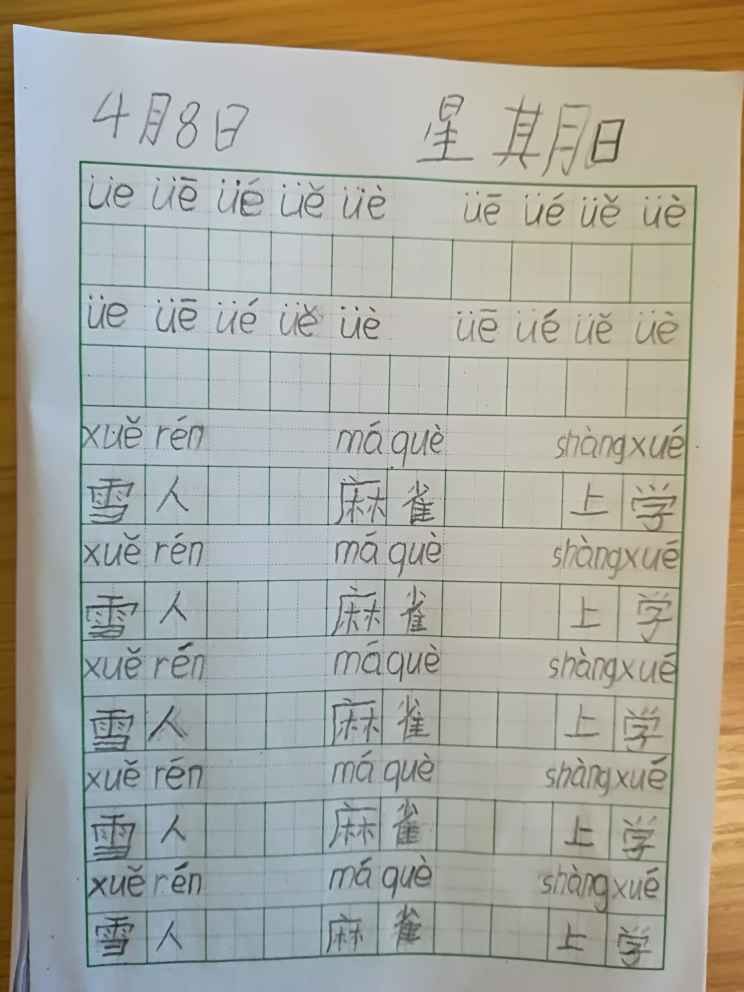 4月8日 星期日
üe üē üé üě üè üē üé üě üè
üe üē üé üě üè üē üé üě üè
xuě rén má què shàng xué
雪人 麻雀 上学
xuě rén má què shàng xué
雪人 麻雀 上学
xuě rén má què shàng xué
雪人 麻雀 上学
xuě rén má què shàng xué
雪人 麻雀 上学
xuě rén má què shàng xué
雪人 麻雀 上学